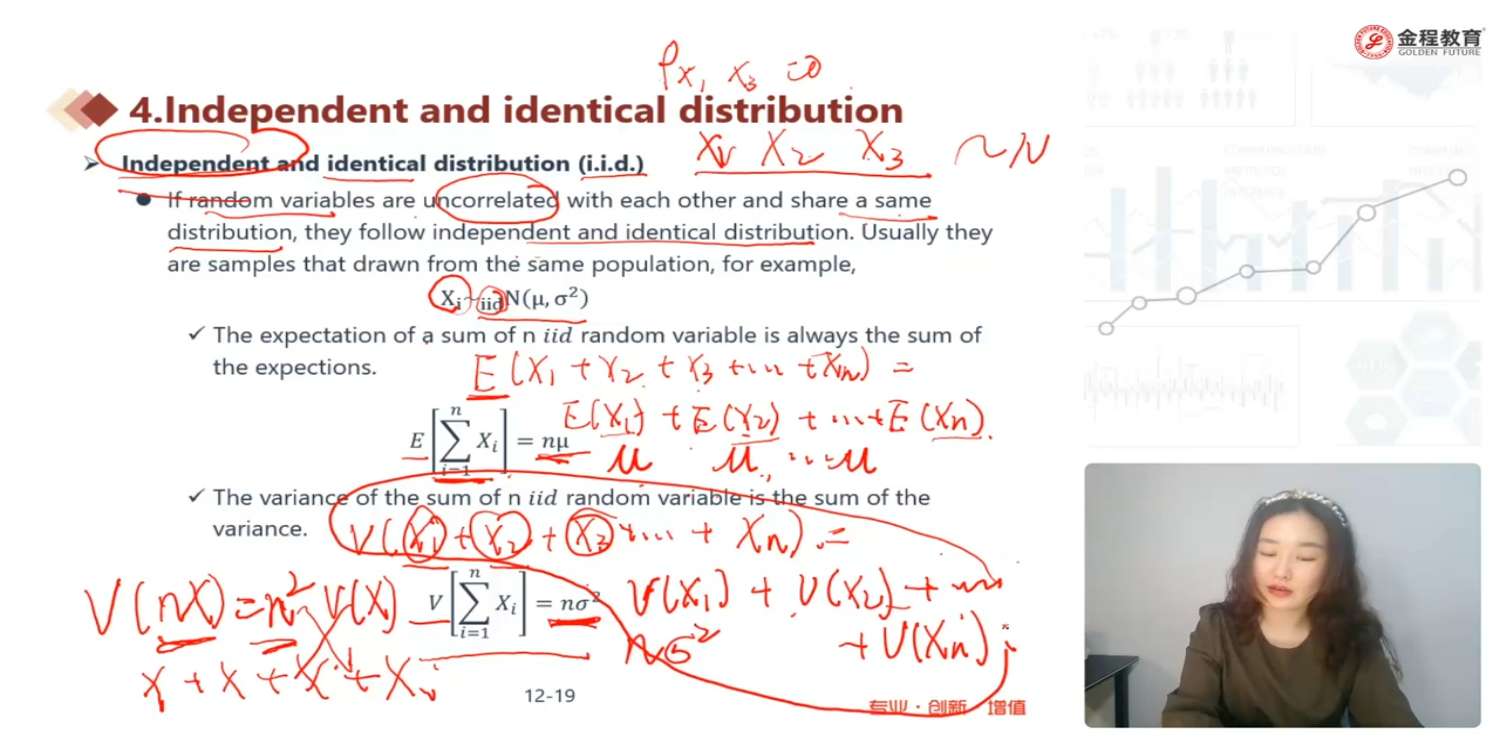 金程教育
GOLDEN FUTURE
ρx₁ x₃ =0
4.Independent and identical distribution
Independent and identical distribution (i.i.d.)
X₁ X₂ X₃ ~N
If random variables are uncorrelated with each other and share a same
distribution, they follow independent and identical distribution. Usually they
are samples that drawn from the same population, for example,
Xᵢ~iidN(μ, σ²)
✓ The expectation of a sum of n iid random variable is always the sum of
the expections.
E(X₁ + X₂ + X₃ + ... + Xn) =
E(X₁) + E(X₂) + ... + E(Xn)
E[∑ᵢ₌₁ⁿ Xᵢ] = nμ
μ μ ... μ
✓ The variance of the sum of n iid random variable is the sum of the
variance.
V(X₁ + X₂ + X₃ + ... + Xn) =
V(nX) = n² V(X)
V[∑ᵢ₌₁ⁿ Xᵢ] = nσ²
V(X₁) + V(X₂) + ...
+ V(Xn)
nσ²
X + X + X + X
12-19
专业·创新 增值